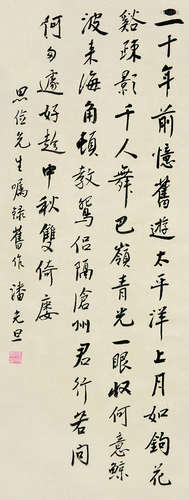 二十年前憶舊遊太平洋上月如鉤花
谿疎影千人舞巴嶺青光一眼收何意鯨
波来海角頓教鴛侣隔滄州君行若問
何勾處好趁中秋雙倚廔
思俭先生嘱録舊作潘光旦